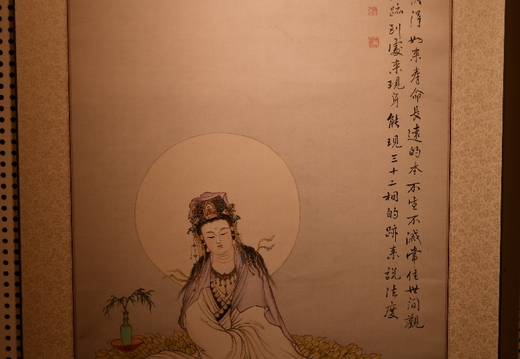 得如來壽命長遠的本不生不滅常住世間觀
跡到處來現身能現三十二相的跡來說法度